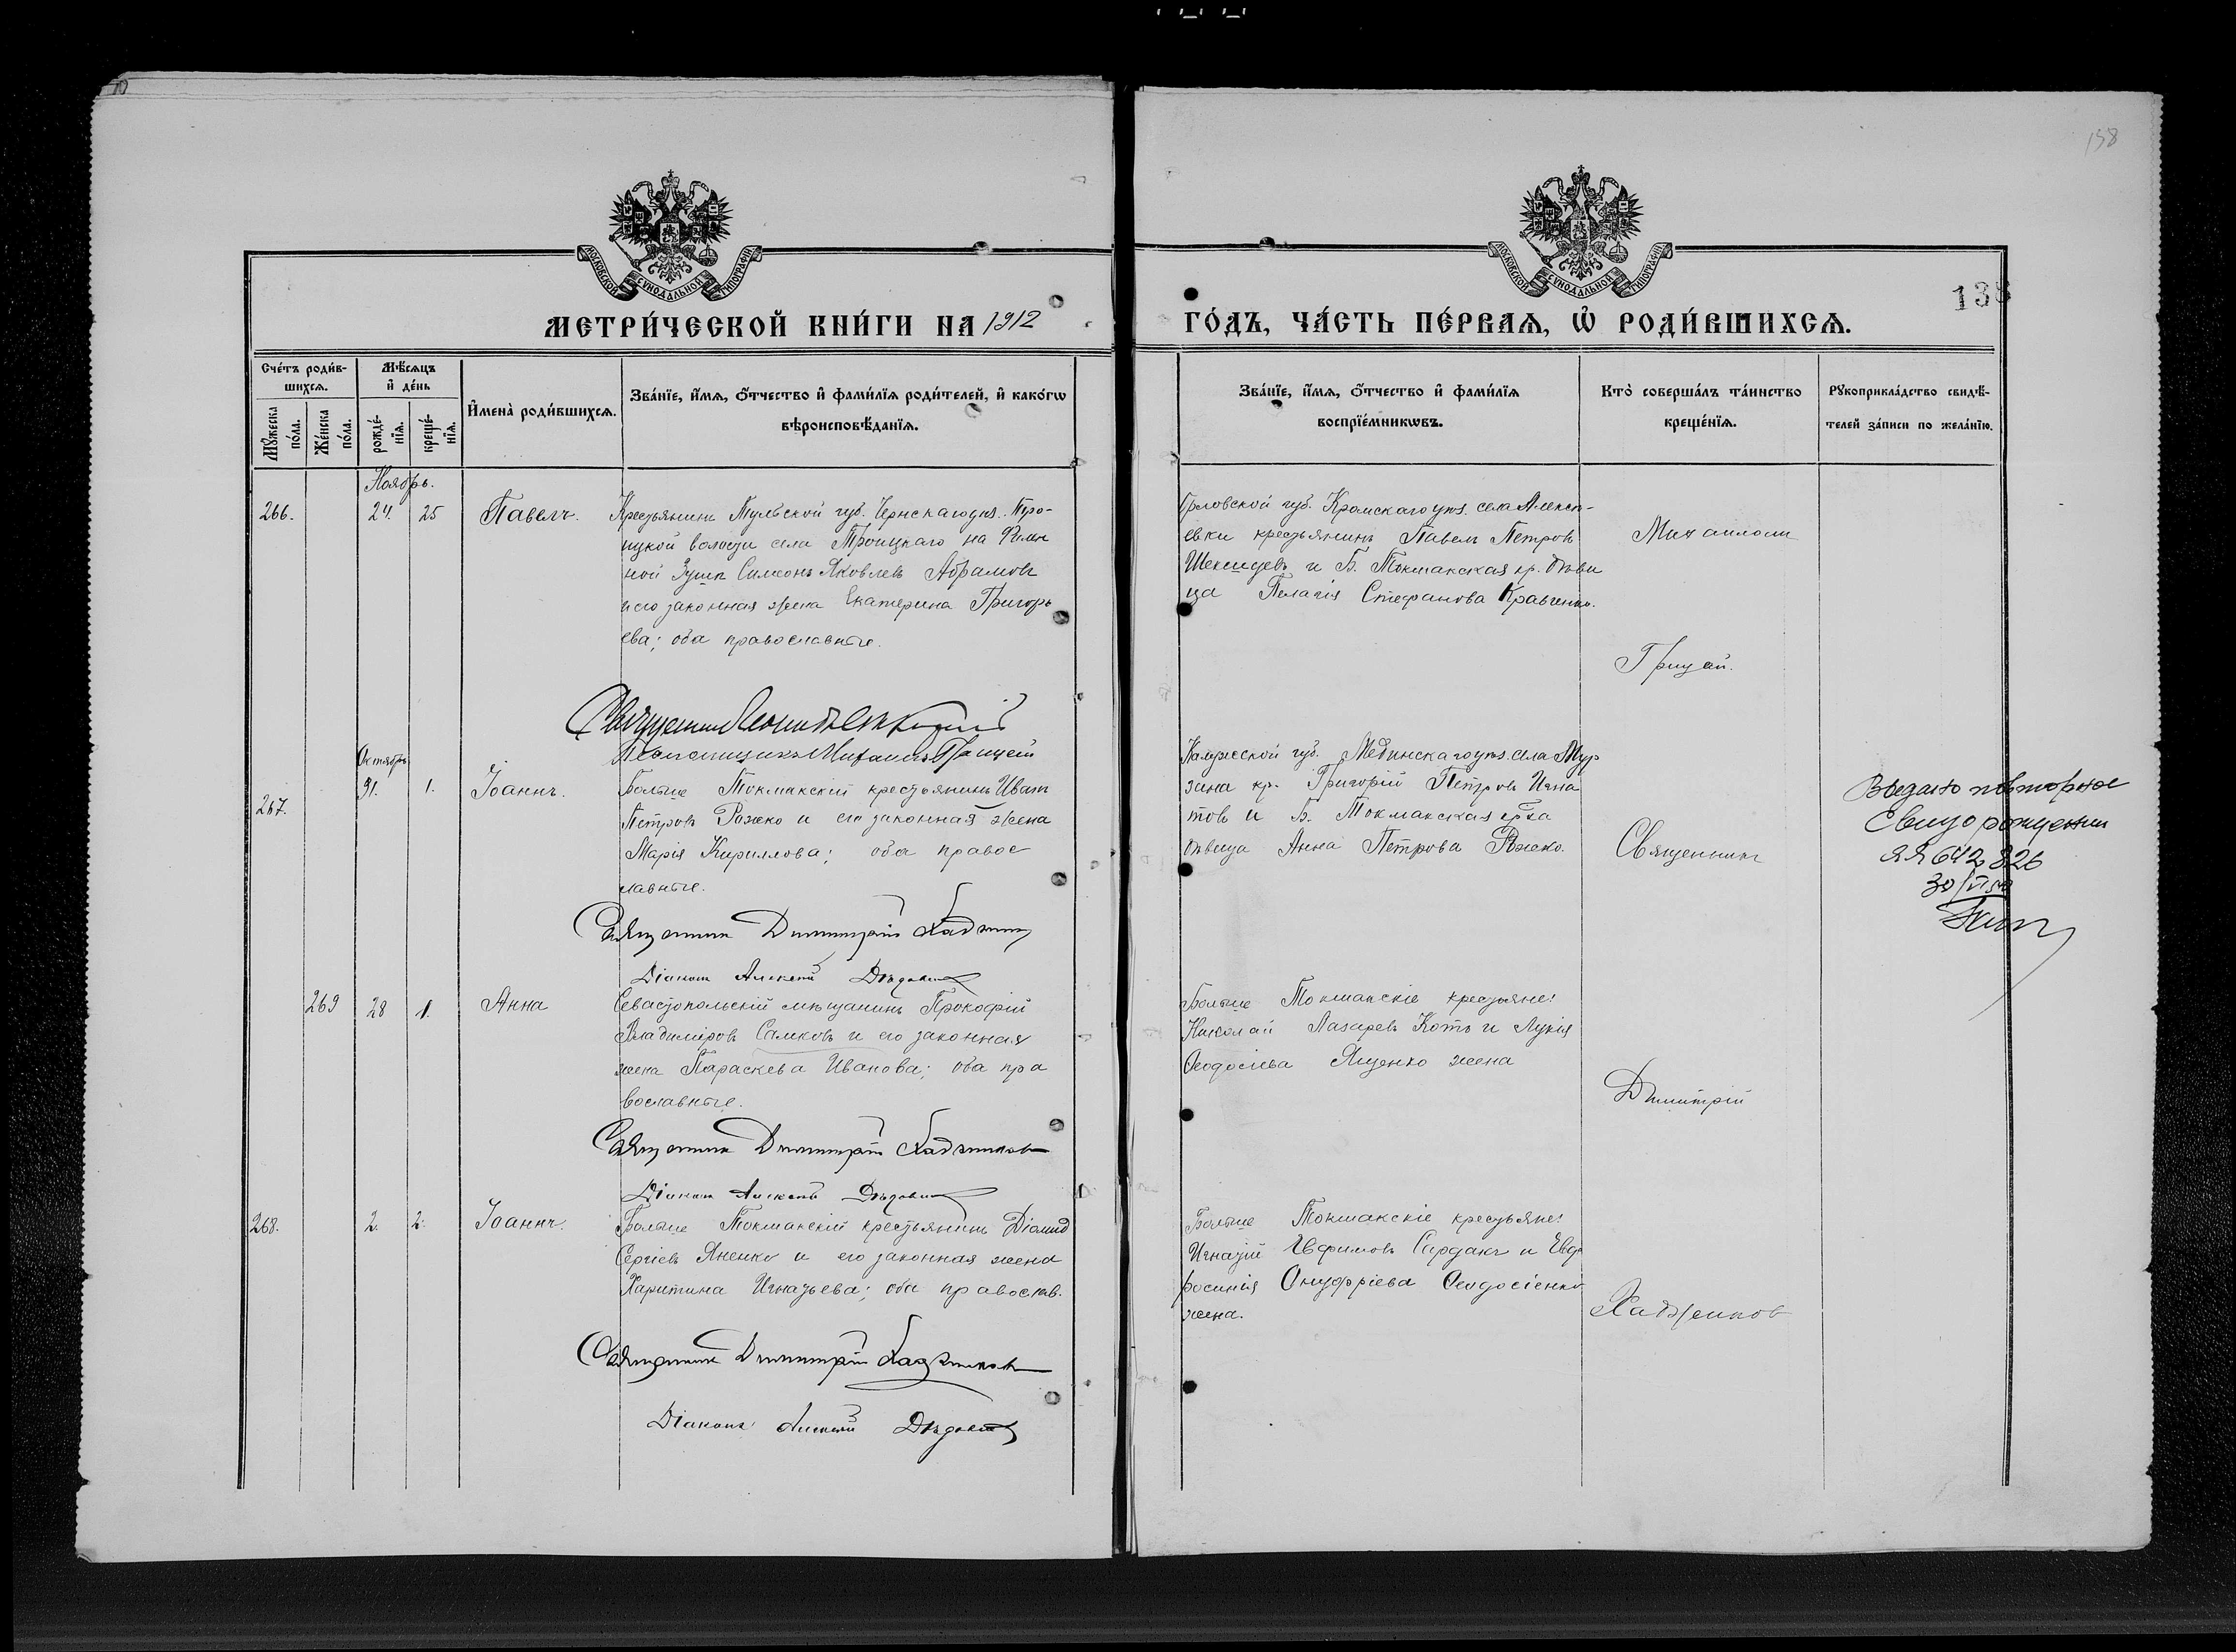 158
138
МОСКОВСКОЙ СѴНОДАЛЬНОЙ ТИПОГРАФІИ
МОСКОВСКОЙ СѴНОДАЛЬНОЙ ТИПОГРАФІИ
МЕТРИ́ЧЕСКОЙ КНИ́ГИ НА 1912
ГО́ДЪ, ЧА́СТЬ ПЕ́РВАѦ, Ѡ҆ РОДИ́ВШИХСѦ.
Сче́тъ роди́в-
шихсѧ.
Мꙋжеска по́ла.
Же́нска по́ла.
Мѣ́сѧцъ
и҆ де́нь
рожде́-
нїѧ.
креще́-
нїѧ.
И҆мена̀ роди́вшихсѧ.
Зва́нїе, и҆́мѧ, ѻ҆́тчество и҆ фами́лїѧ роди́телей, и҆ како́гѡ
вѣроисповѣ́данїѧ.
Зва́нїе, и҆́мѧ, ѻ҆́тчество и҆ фами́лїѧ
воспрїе́мникѡвъ.
Кто̀ соверша́лъ та́инство
креще́нїѧ.
Рꙋкоприкла́дство свидѣ́-
телей за́писи по жела́нїю.
Ноябрь.
266. 24. 25 Павелъ.
Крестьянинъ Тульской губ. Чернскаго уѣз. Тро-
ицкой волости села Троицкаго на
ной Симеонъ Яковлевъ Абрамовъ
и его законная жена Екатерина Григорь
ева; оба православные.
Орловской губ. Кромскаго уѣз. села Алексѣ-
евки крестьянинъ Павелъ Петровъ
и Б. Токмакская кр. дѣви
ца Пелагія Стефанова Кравченко.
Священникъ
Псаломщикъ Михаилъ Грицай
Михаиломъ
Грицай.
Октябрь
267. 31. 1. Іоаннъ.
Больше Токмакскій крестьянинъ Иванъ
Петровъ Рожко и его законная жена
Марія Кириллова; оба правос
лавные.
Священникъ Димитрій
Діаконъ Алексѣй
Калужской губ. Мединскаго уѣз. села Мур
зина кр. Григорій Петровъ Игна
товъ и Б. Токмакская кр-ка
дѣвица Анна Петрова Рожко.
Священникъ
Выдано повторное
Свид о рождении
ЯЯ 642826
269 28 1. Анна
Севастопольскій мѣщанинъ Прокофій
Владиміровъ Самковъ и его законная
жена Параскева Иванова; оба пра
вославные.
Священникъ Димитрій Хаджиновъ
Діаконъ Алексѣй
Больше Токмакскіе крестьяне:
Николай Лазаревъ Котъ и Лукія
Ѳеодосіева Яценко жена
Димитрій
268. 2. 2. Іоаннъ.
Больше Токмакскій крестьянинъ Діомид
Сергіевъ Яненко и его законная жена
Харитина Игнатьева; оба православ.
Священникъ Димитрій Хаджиновъ
Діаконъ Алексѣй
Больше Токмакскіе крестьяне:
Игнатій Евфимовъ Сардакъ и Евф
росинія Онуфріева Ѳеодосіенко
жена.
Хаджиновъ